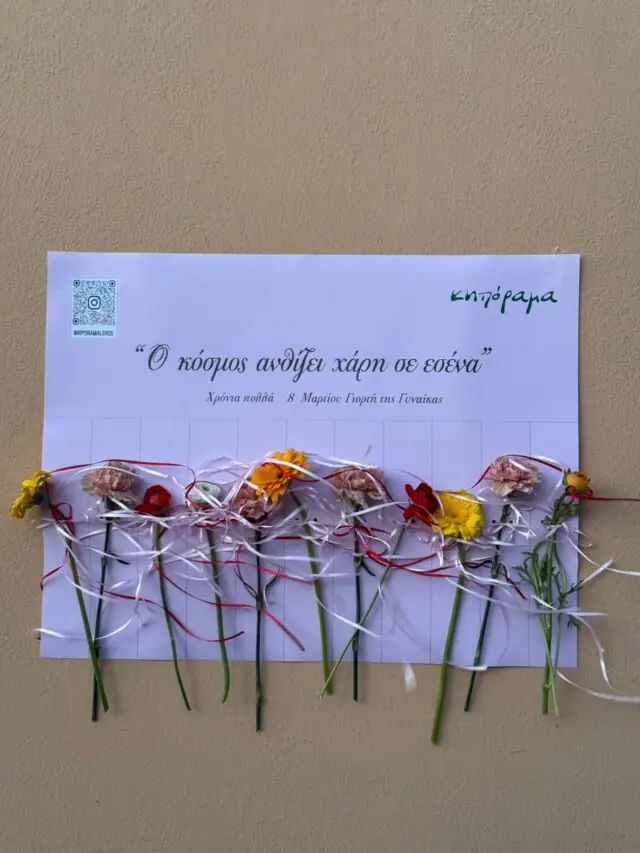 κηπόραμα
@KIPORAMALEROS
“Ο κόσμος ανθίζει χάρη σε εσένα”
Χρόνια πολλά 8 Μαρτίου Γιορτή της Γυναίκας